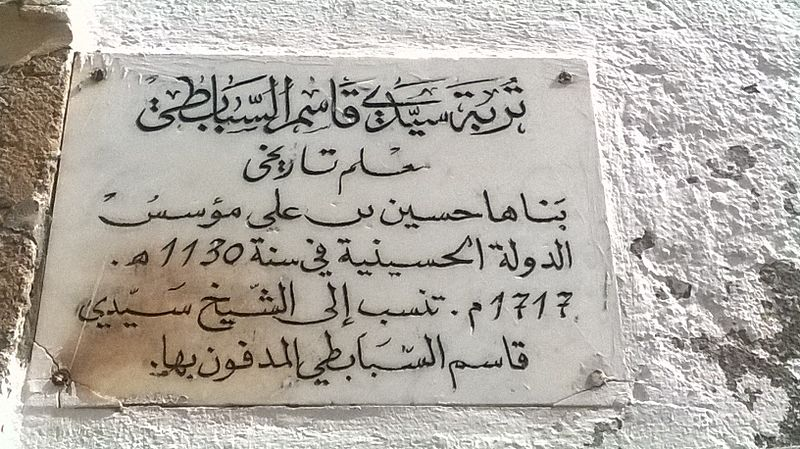 تُربة سيّدي قاسم السّبابطي
معلم تاريخي
بَناها حسين بن علي مؤسسُ
الدولة الحسينية في سنة 1130 هـ.
1717 م. تنسب إلى الشّيخ سَيّدي
قاسم السّبَابطي المدفون بها.